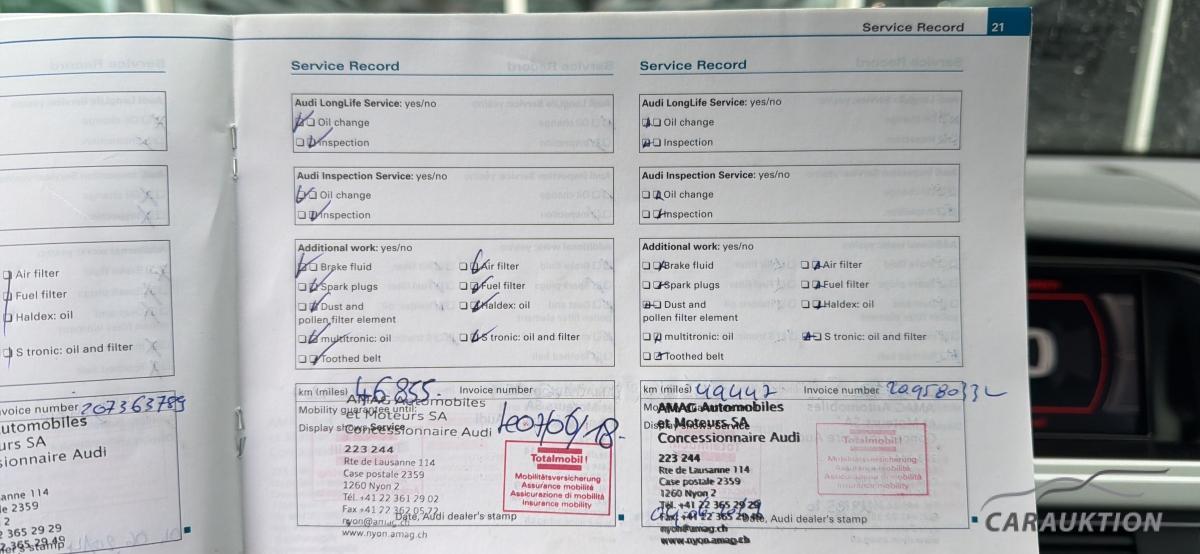 Service Record 21
Air filter
Fuel filter
Haldex: oil
S tronic: oil and filter
nvoice number 207363789
utomobiles
urs SA
sionnaire Audi
anne 114
e 2359
2
2 365 29 29
2 365 29 49
ler's stamp
Service Record
Audi LongLife Service: yes/no
Oil change
Inspection
Audi Inspection Service: yes/no
Oil change
Inspection
Additional work: yes/no
Brake fluid Air filter
Spark plugs Fuel filter
Dust and Haldex: oil
pollen filter element
multitronic: oil S tronic: oil and filter
Toothed belt
km (miles) 46 855.- Invoice number
Mobility guarantee until:
Display shows Service
AMAG Automobiles
et Moteurs SA
Concessionnaire Audi
223 244
Rte de Lausanne 114
Case postale 2359
1260 Nyon 2
Tél. +41 22 361 29 02
Fax +41 22 362 05 72
nyon@amag.ch
www.nyon.amag.ch
Totalmobil!
Mobilitätsversicherung
Assurance mobilité
Assicurazione di mobilità
Insurance mobility
Date, Audi dealer's stamp
Service Record
Audi LongLife Service: yes/no
Oil change
Inspection
Audi Inspection Service: yes/no
Oil change
Inspection
Additional work: yes/no
Brake fluid Air filter
Spark plugs Fuel filter
Dust and Haldex: oil
pollen filter element
multitronic: oil S tronic: oil and filter
Toothed belt
km (miles) 49447 Invoice number
Display shows Service
AMAG Automobiles
et Moteurs SA
Concessionnaire Audi
223 244
Rte de Lausanne 114
Case postale 2359
1260 Nyon 2
Tél. +41 22 365 29 29
Fax +41 22 365 29 49
nyon@amag.ch
www.nyon.amag.ch
Totalmobil!
Mobilitätsversicherung
Assurance mobilité
Assicurazione di mobilità
Insurance mobility
Date, Audi dealer's stamp
CARAUKTION